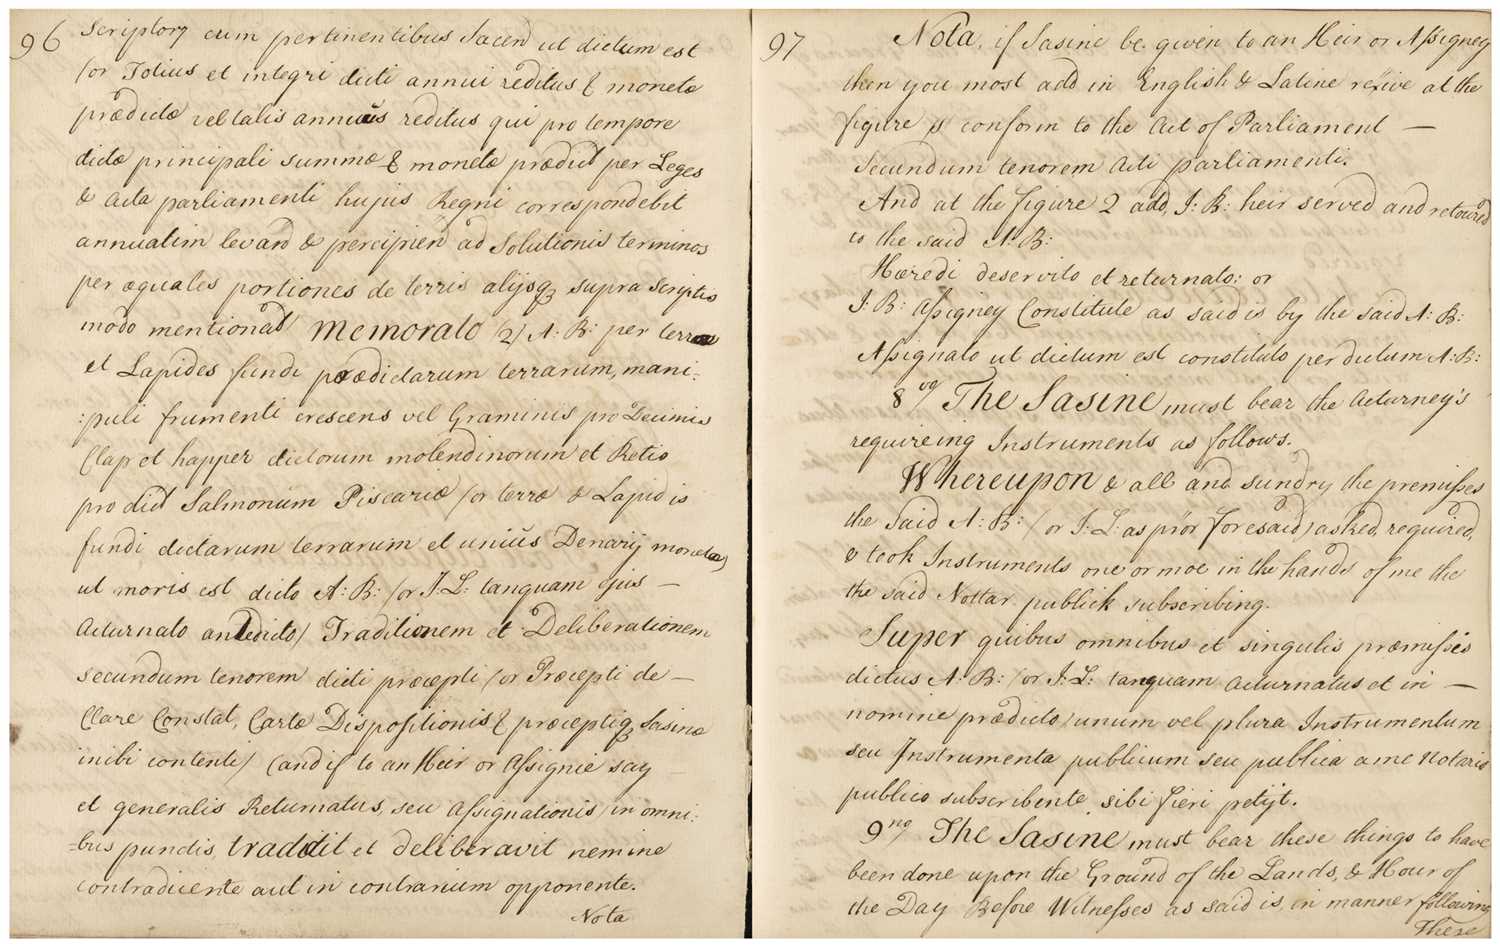 96
Scriptorq cum pertinentibus Jacend ut dictum est
(or Totius et integri dicti annui reditus & monetæ
prædictæ vel talis annuus reditus qui pro tempore
dictæ principali summæ & monetæ prædict per Leges
& Acta parliamenti hujus Regni correspondebit
annuatim levand & percipiend ad Solutionis terminos
per æquales portiones de terris alijsq supra Scriptis
modo mentionat) Memorato (2) A: B: per terræ
et Lapides fundi prædictarum terrarum, mani-
:puli frumenti crescens vel Graminis pro Decimis
Clap et happer dictorum molendinorum et Retio
pro dict Salmonum Piscariæ (or terræ & Lapidis
fundi dictarum terrarum et unius Denarij monetæ)
ut moris est dicto A: B: (or J: L: tanquam ejus —
Acturnato antedicto) Traditionem et Deliberationem
secundum tenorem dicti præcepti (or Præcepti de —
Clare Constat, Cartæ Dispositionis & præceptiq Sasinæ
inibi contenti) (and if to an Heir or Assignie say —
et generalis Returnatus, seu Assignationis) in omni:
=bus pundis, tradidit et deliberavit nemine
contradicente aut in contrarium opponente.
Nota
97
Nota, if Sasine be given to an Heir or Assigney
then you most add in English & Latine rexive at the
figure 1 conform to the Act of Parliament —
Secundum tenorem Acti parliamenti.
And at the figure 2 add, J: B: heir served and retoured
to the said A: B:
Hæredi deservito et returnato: or
J: B: Assigney Constitute as said is by the said A: B:
Assignato ut dictum est constituto per dictum A: B:
8vo The Sasine must bear the Acturney's
requireing Instruments as follows.
Whereupon & all and sundry the premisses
the Said A: B: (or J: L: as prior foresaid) asked, required,
& took Instruments one or moe in the hands of me the
the said Nottar publick subscribing.
Super quibus omnibus et singulis præmissis
dictus A: B: (or J: L: tanquam Acturnatus et in —
nomine prædicto) unum vel plura Instrumentum
seu Instrumenta publicum seu publica a me Notario
publico subscribente sibi fieri petijt.
9no The Sasine must bear these things to have
been done upon the Ground of the Lands, & Hour of
the Day Before Witnesses as said is, in manner following
There